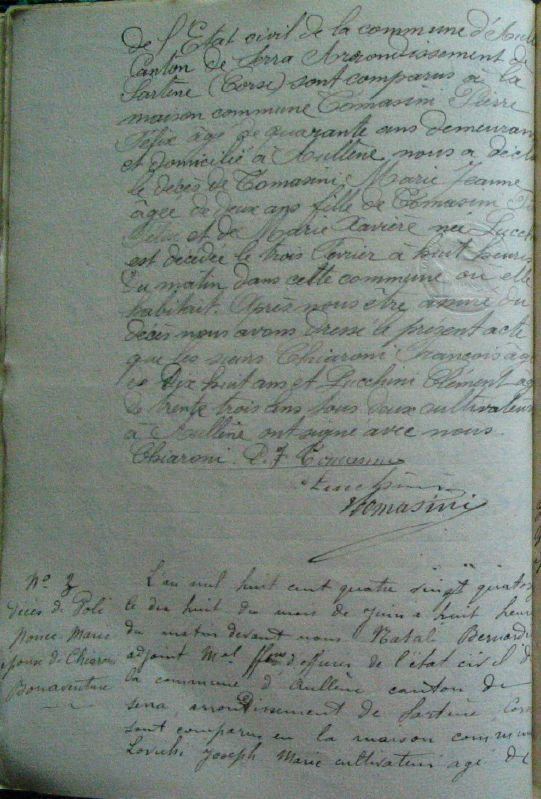 de l'Etat civil de la commune d'Aullè
Canton de Serra Arrondissement de
Sartène (Corse) sont comparus à la
maison commune Tomasini Pierre
Félix âgé de quarante ans demeuran
et domicilié à Aullène, nous a décla
le décès de Tomasini Marie Jeanne
âgée de deux ans fille de Tomasini
Félix et de Marie Xavière née Lucch
est décédée le trois Fevrier à huit heures
du matin dans cette commune où elle
habitait. Après nous être assuré du
décès nous avons dressé le présent acte
que les sieurs Chiaroni François âg
de Dix huit ans et Lucchini Clément âg
de trente trois ans tous deux cultivateurs
à Aullène ont signé avec nous
Chiaroni. D. F Tomasini
Lucchini
Tomasini
No 3
Décès de Poli
Nonce Marie
épouse de Chiaroni
Bonaventure
L'an mil huit cent quatre vingt quatorz
le dix huit du mois de juin à huit heur
du matin devant nous Natal Bernardi
adjoint d'officier de l'état civil d
la commune d'Aullène canton de
serra, arrondissement de Sartène, Cors
sont comparus en la maison commune
Joseph Marie cultivateur âgé de